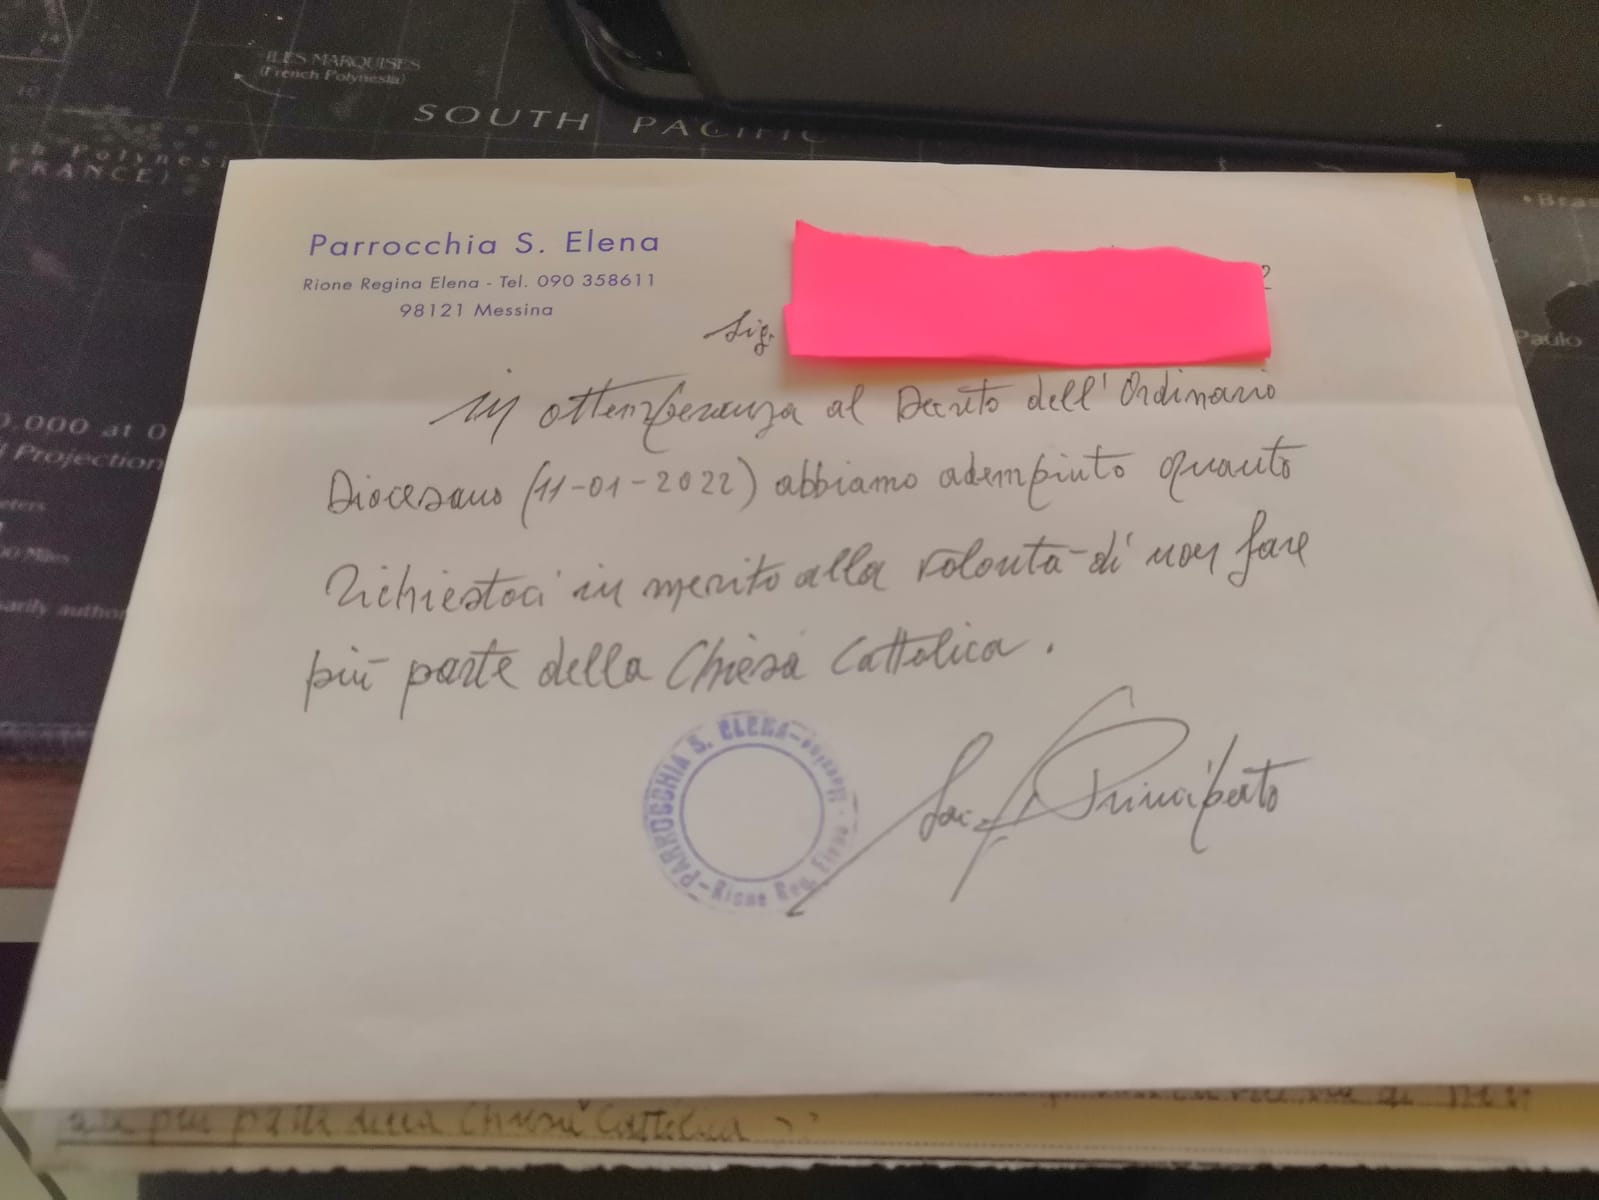 ILES MARQUISES
(French Polynesia)
SOUTH PACIFIC
FRANCE)
Parrocchia S. Elena
Rione Regina Elena - Tel. 090 358611
98121 Messina
2
Sig.
in ottemperanza al Decreto dell'Ordinario
Diocesano (11-01-2022) abbiamo adempiuto quanto
richiestoci in merito alla volontà di non fare
più parte della Chiesa Cattolica.
PARROCCHIA S. ELENA - Messina - Rione Reg. Elena -
Sac. Principato
0.000 at 0
Projection
Paulo
più parte della Chiesa Cattolica